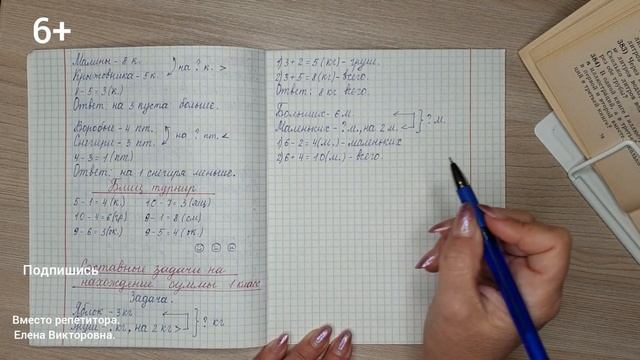 6+
Малины - 8 к.
Крыжовника - 5 к.
на ? к. >
8 - 5 = 3 (к.)
Ответ: на 3 куста больше.
Воробьи - 4 пт.
Снегири - 3 пт.
на ? пт. <
4 - 3 = 1 (пт.)
Ответ: на 1 снегиря меньше.
Блиц турнир
5 - 1 = 4 (к.) 10 - 7 = 3 (ящ)
10 - 4 = 6 (гр.) 9 - 1 = 8 (см)
9 - 6 = 3 (ок.) 9 - 5 = 4 (ок.)
Составные задачи на
нахождение суммы 1 класс
Задача.
Яблок - 3 кг
Груш - ? кг, на 2 кг >
? кг
1) 3 + 2 = 5 (кг) - груш.
2) 3 + 5 = 8 (кг) - всего.
Ответ: 8 кг всего.
Больших - 6 м.
Маленьких - ? м., на 2 м. <
? м.
1) 6 - 2 = 4 (м.) - маленьких
2) 6 + 4 = 10 (м.) - всего.
383)
384)
Подпишись
Вместо репетитора.
Елена Викторовна.